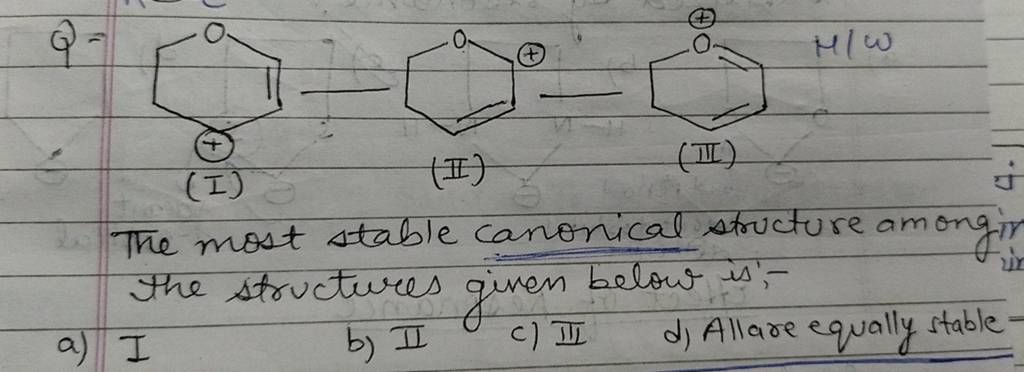 Q=
O
O
⊕
⊕
O
H/W
⊕
(I)
(II)
(III)
The most stable canonical structure among
the structures given below is:-
a) I b) II c) III d) All are equally stable